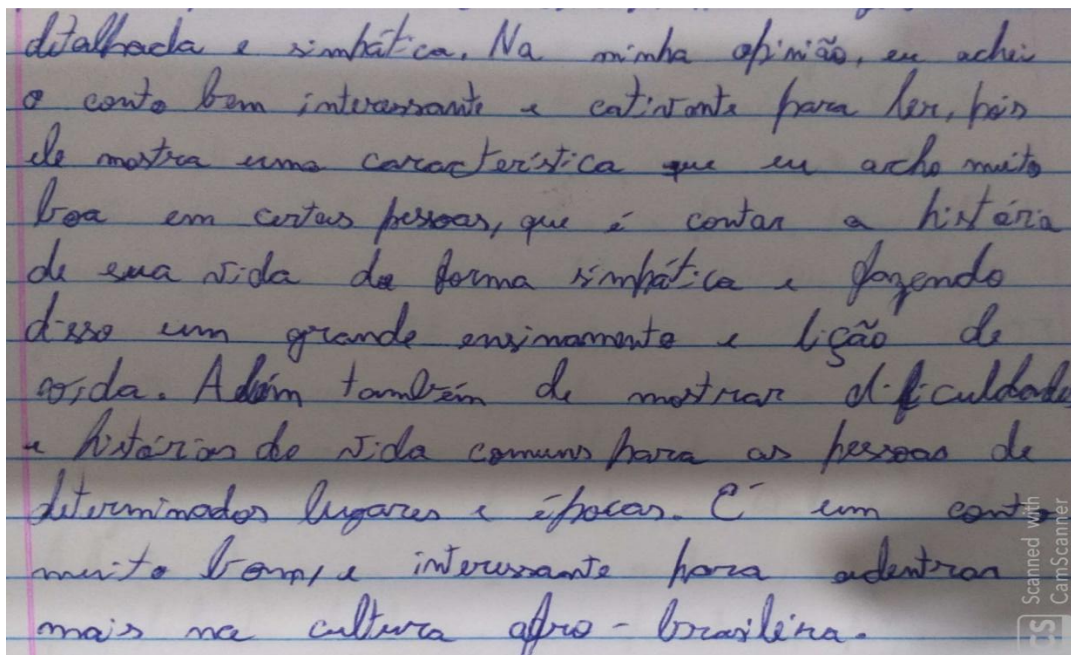 detalhada e simpática. Na minha opinião, eu achei
o conto bem interessante e cativante para ler, pois
ele mostra uma característica que eu acho muito
boa em certas pessoas, que é contar a história
de sua vida de forma simpática e fazendo
disso um grande ensinamento e lição de
vida. Além também de mostrar dificuldades
e histórias de vida comuns para as pessoas de
determinados lugares e épocas. É um conto
muito bom, e interessante para adentrar
mais na cultura afro-brasileira.
Scanned with
CamScanner
CS